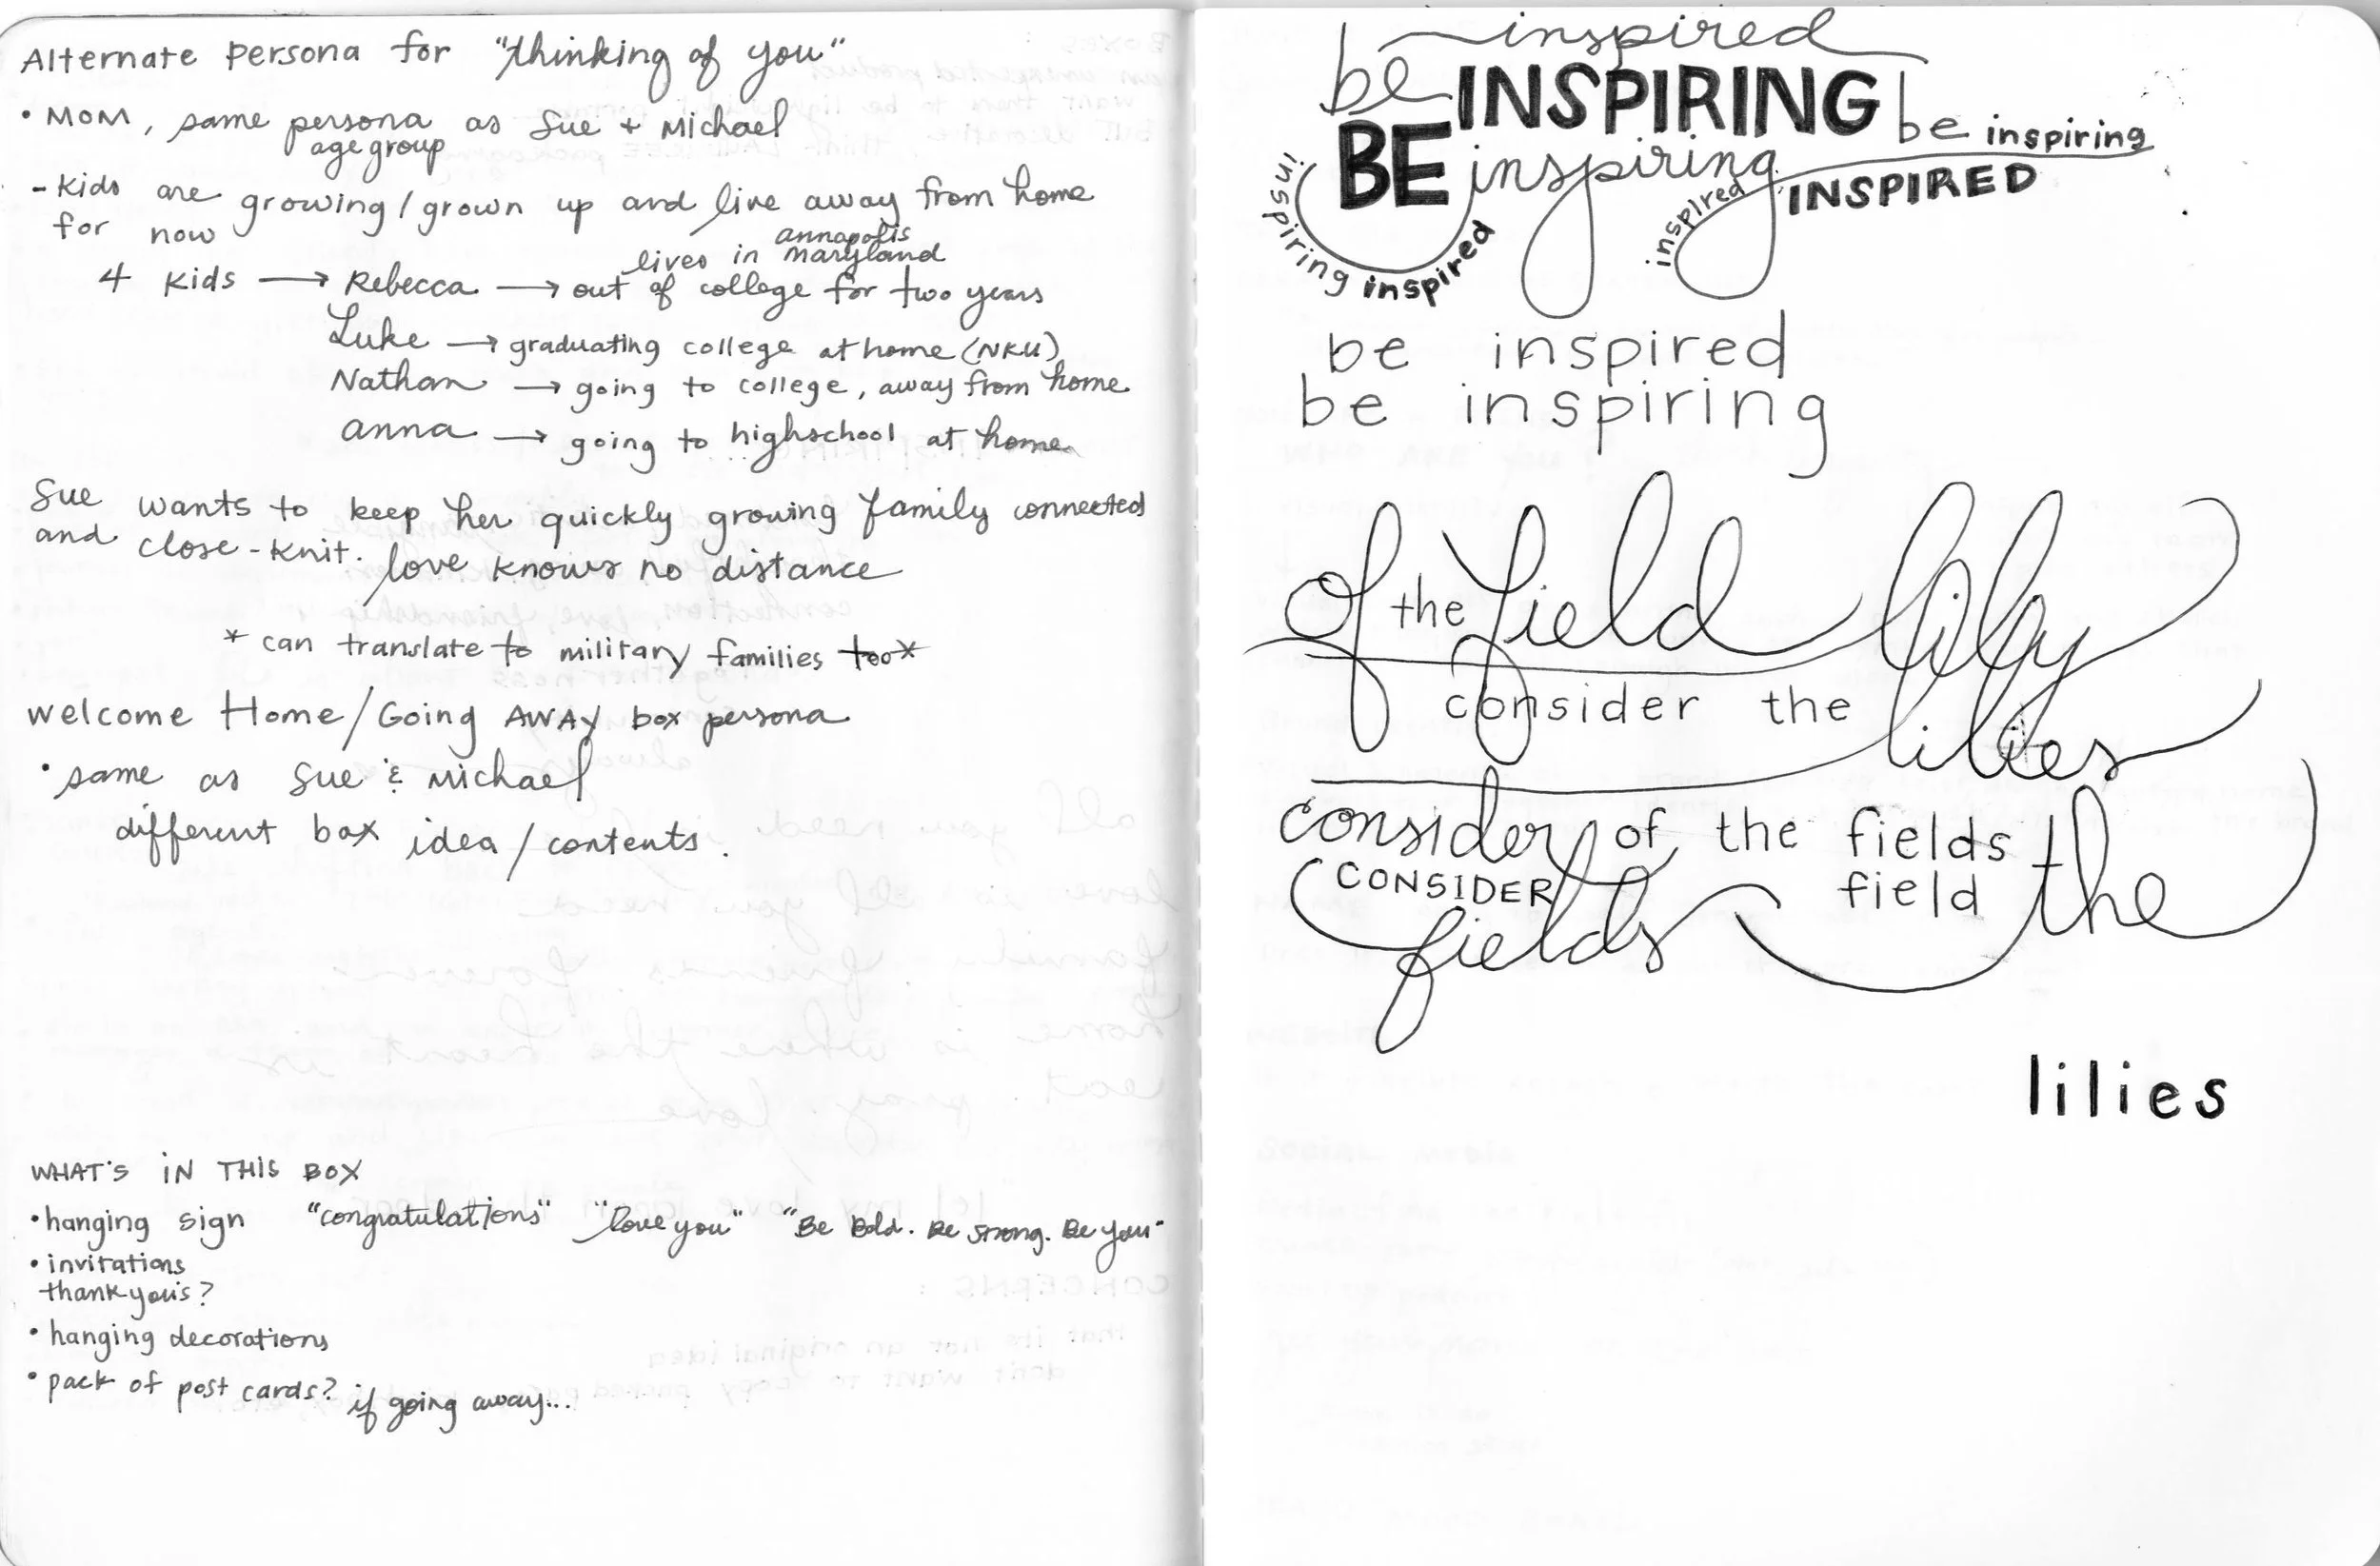 Alternate Persona for "thinking of you"
• MOM, same persona as Sue + Michael
age group
- kids are growing/grown up and live away from home
for now
annapolis
lives in maryland
4 kids → Rebecca → out of college for two years
Luke → graduating college at home (NKU)
Nathan → going to college, away from home
anna → going to highschool at home
Sue wants to keep her quickly growing family connected
and close-knit. love knows no distance
* can translate to military families too*
welcome Home/Going AWAY box persona
• same as Sue & Michael
different box idea/contents.
WHAT'S IN THIS BOX
• hanging sign "congratulations" "love you" "Be Bold. Be strong. Be you"
• invitations
thank-you's?
• hanging decorations
• pack of post cards? if going away...
be inspired
be INSPIRING be inspiring
BE inspiring INSPIRED
inspiring inspired
inspired
be inspired
be inspiring
of the field lily
consider the lilies
consider of the fields the
CONSIDER field
fields
lilies